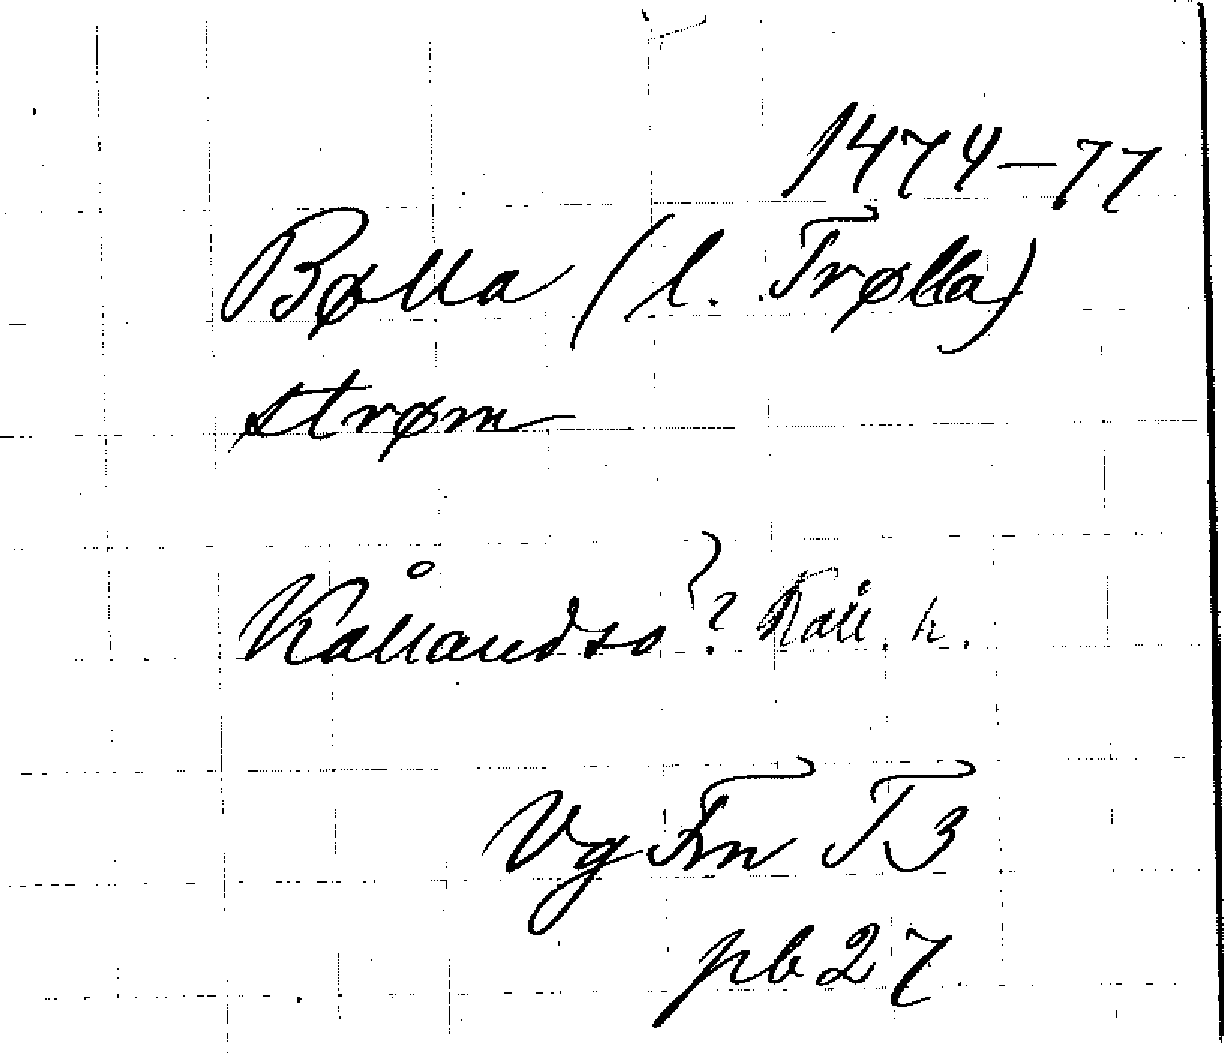 1474-77
Bølla (l. Trølla)
strøm
Kållandsø? Kåll. h.
Vg Fm T3
pb 27